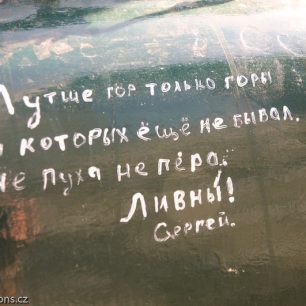 Лутше гор только горы
которых ещё не бывал.
не пуха не пёра.
Ливны!
Сергей.
ons.cz